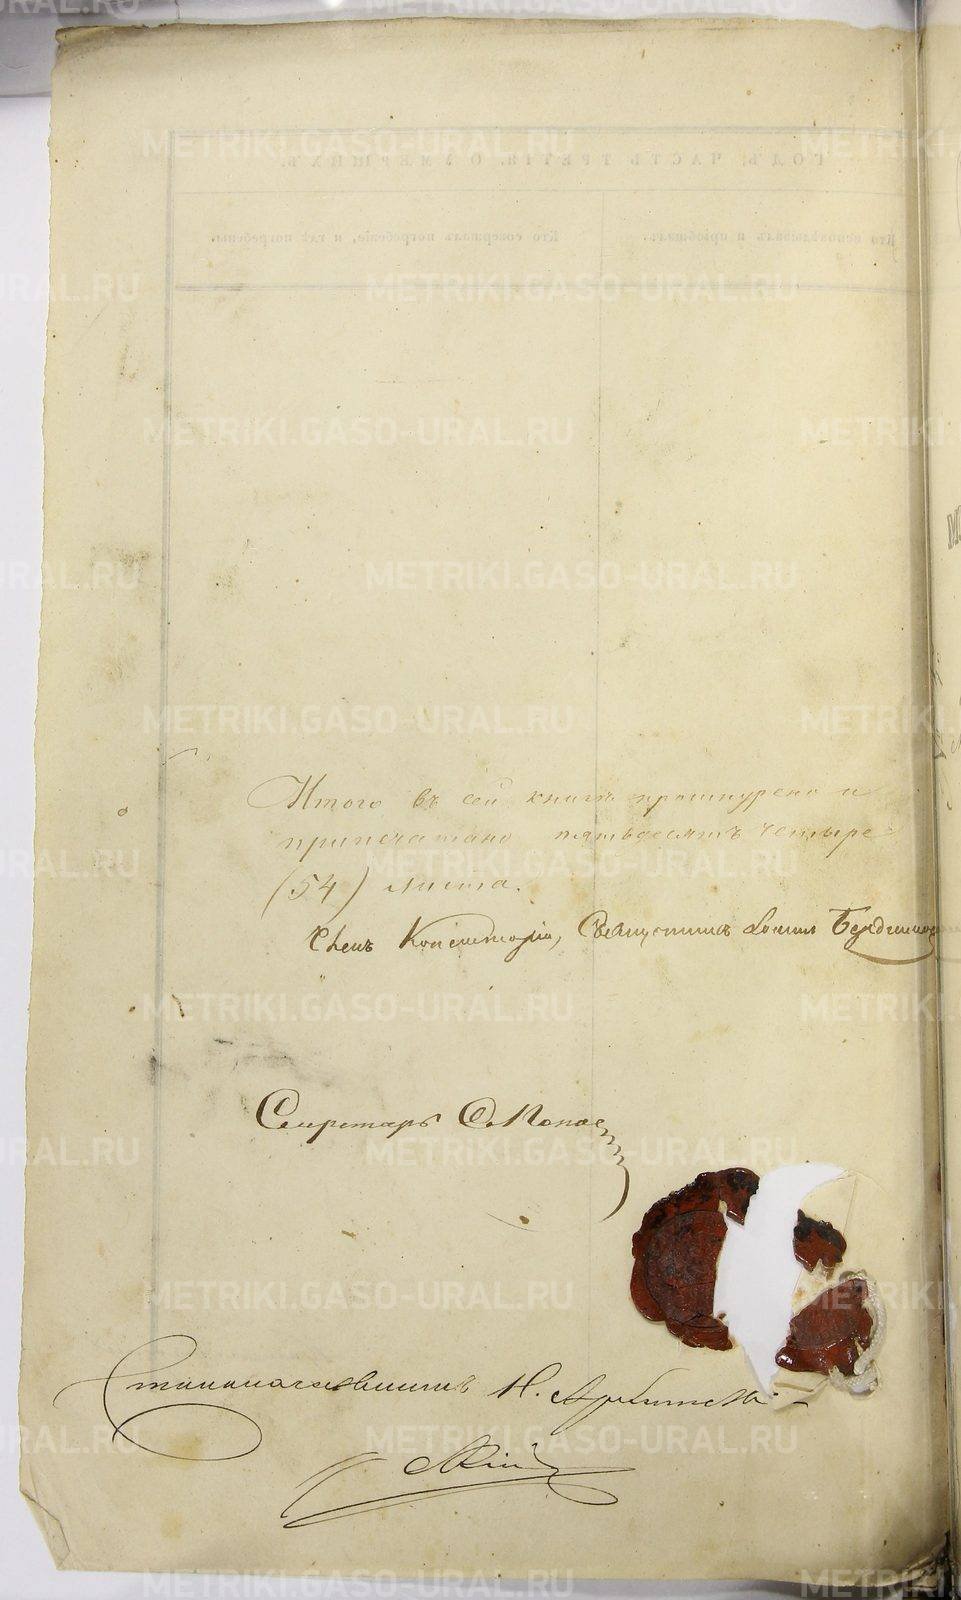 METRIKI.GASO-URAL.RU
ГОДЪ, ЧАСТЬ ТРЕТІЯ, О УМЕРШИХЪ.
Кто исповѣдывалъ и пріобщалъ. Кто совершалъ погребеніе, и гдѣ погребены.
Итого въ сей книгѣ прошнурено и
припечатано пятьдесятъ четыре
(54) листа.
Членъ Консисторіи, Священникъ Іоаннъ
Секретарь Поповъ
Столоначальникъ Н.